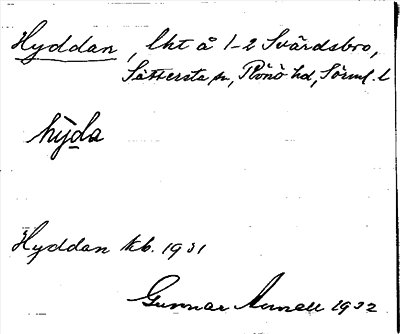 Hyddan, lht å 1-2 Svärdsbro,
Sättersta sn, Rönö hd, Sörml. l
hỳda
Hyddan kb. 1931
Gunnar 1932